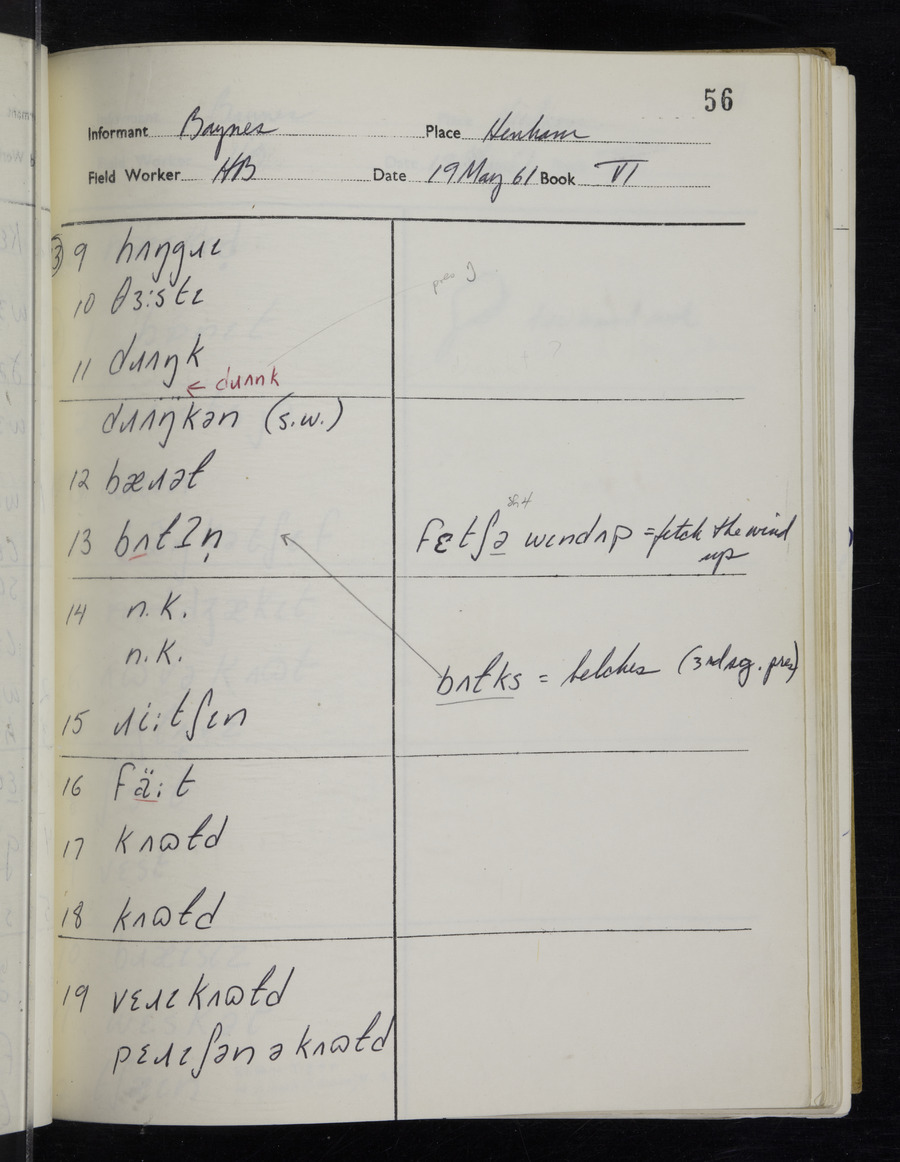 56
Informant Baynes Place Henham
Field Worker HB Date 19 May 61 Book VI
③ 9 hʌŋgɹɪ
10 θɜːstɪ
pres
11 dɹʌŋk
← dɹʌnk
dɹʌŋkən (s.w.)
12 bæɹəł
13 bʌłIṇ
fɛtʃə wɪndʌp = fetch the wind
up
14 n.k.
n.k.
bʌłks = belches (3rd sg. pres)
15 ɹiːtʃɪn
16 fäːt
17 kʌɷłd
18 kʌɷłd
19 vɛɹɪ kʌɷłd
pɛɹɪʃən ə kʌɷłd